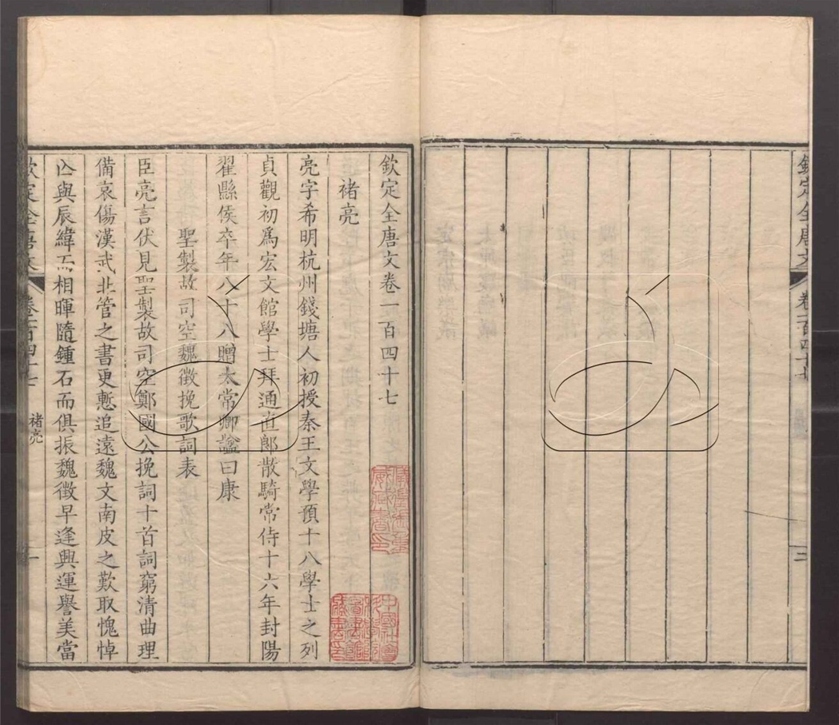 欽定全唐文
欽定全唐文卷一百四十七
褚亮
亮字希明杭州錢塘人初授秦王文學預十八學士之列
貞觀初爲宏文館學士拜通直郞散騎常侍十六年封陽
翟縣侯卒年八十八贈太常卿諡曰康
聖製故司空魏徵挽歌詞表
臣亮言伏見聖製故司空鄭國公挽詞十首詞窮清曲理
備哀傷漢武北管之書更慙追遠魏文南皮之歎取愧悼
亾與辰緯而相暉隨鍾石而俱振魏徵早逢興運譽美當
欽定全唐文
卷一百四十七
褚亮
一